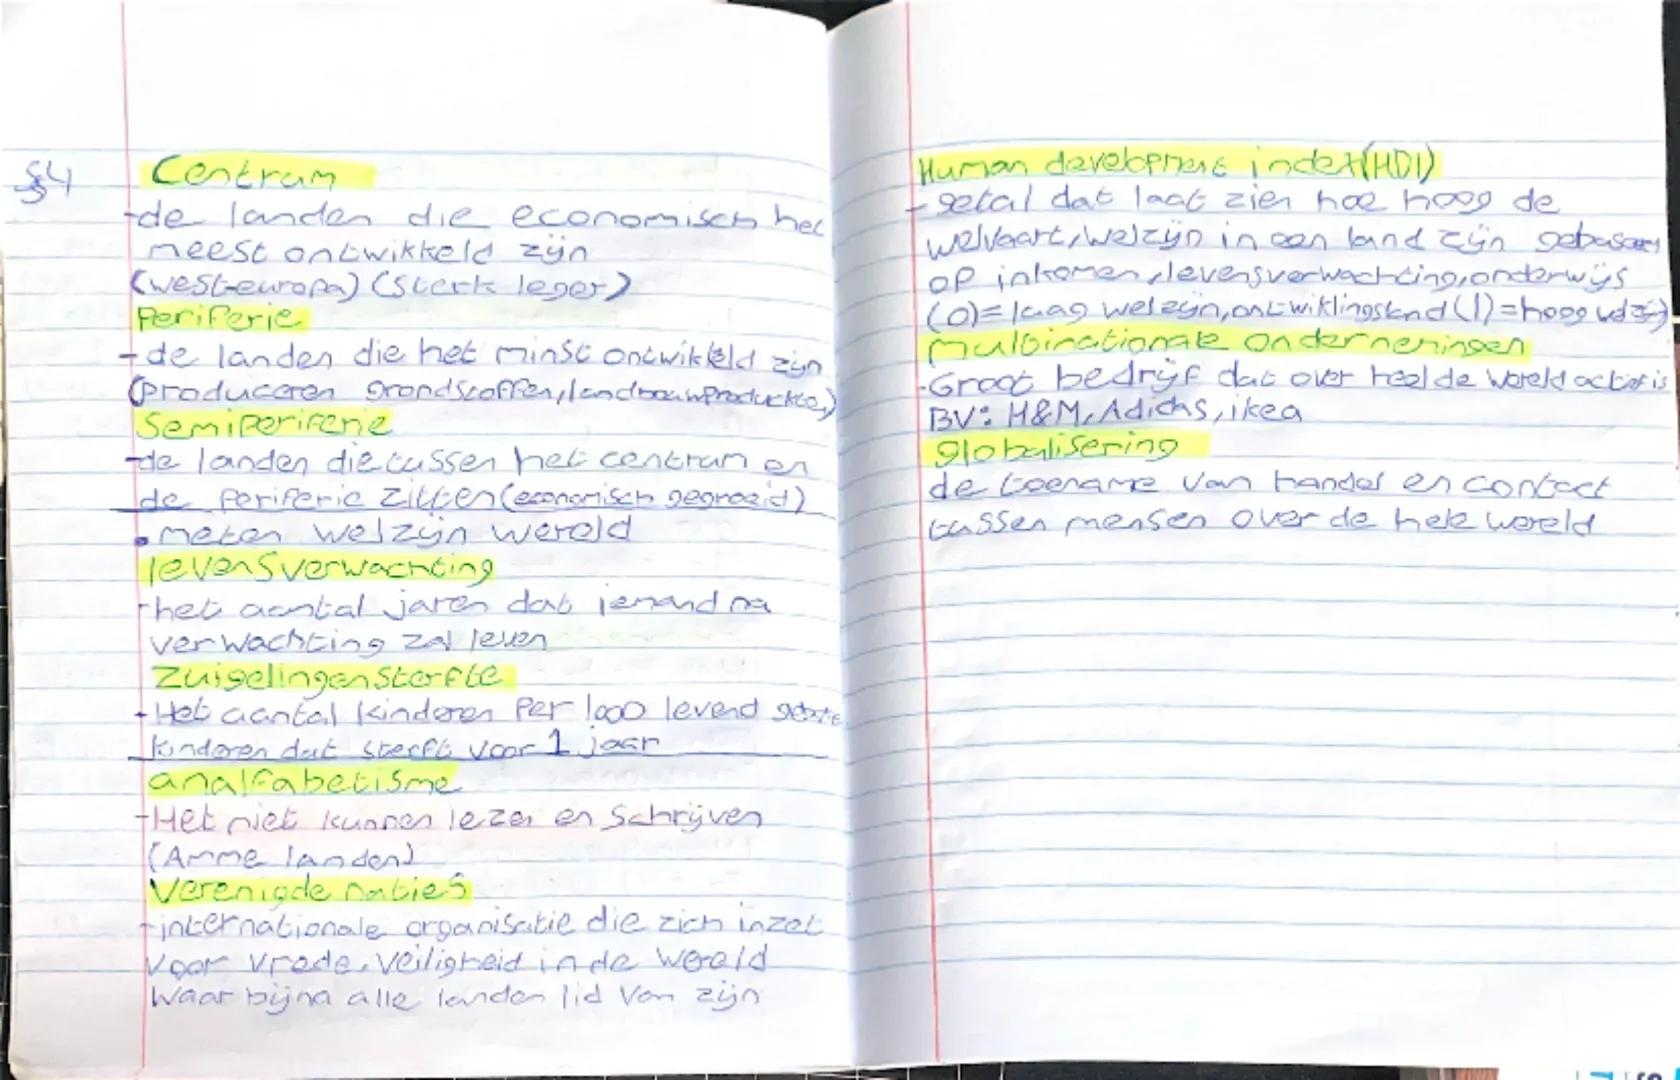 §4
Centrum
-de landen die economisch het
meest ontwikkeld zijn
(west-europa) (sterk leger)
Periferie
-de landen die het minst ontwikkeld zijn
(produceren grondstoffen, landbouwproducten)
Semiperiferie
-de landen die tussen het centrum en
de periferie zitten (economisch gegroeid)
• meten welzijn wereld
levensverwachting
-het aantal jaren dat iemand na
verwachting zal leven
Zuigelingensterfte
-Het aantal kinderen per 1000 levend
kinderen dat sterft voor 1 jaar
analfabetisme
-Het niet kunnen lezen en schrijven
(Arme landen)
Verenigde naties
-internationale organisatie die zich inzet
voor vrede, veiligheid in de wereld
waar bijna alle landen lid van zijn
Human development index (HDI)
-getal dat laat zien hoe hoog de
welvaart, welzijn in een land zijn
op inkomen, levensverwachting, onderwijs
(0)= laag welzijn, ontwiklingsland (1)=hoog
multinationale ondernemingen
-Groot bedrijf dat over heel de wereld actief is
BV: H&M, Adidas, ikea
globalisering
de toename van handel en contact
tussen mensen over de hele wereld